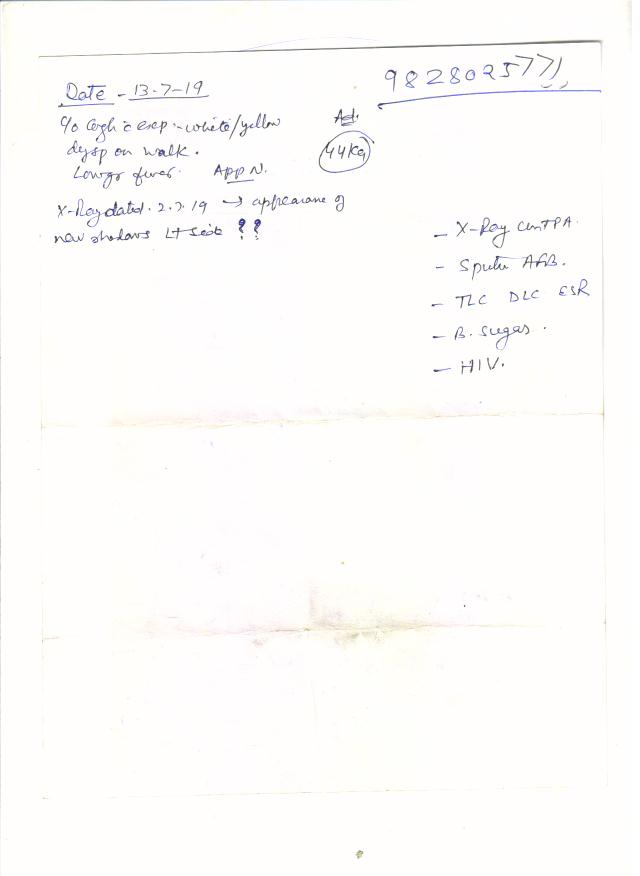 9828025771
Date - 13-7-19
c/o Cough c exep - white/yellow
dysp on walk.
Lowgr fever. App N.
Ad.
44Kg
X-Ray dated. 2.7.19 → appearane of
new shadows Lt side ??
- X-Ray Chest PA
- Sputu AFB.
- TLC DLC ESR
- B. Sugar.
- HIV.